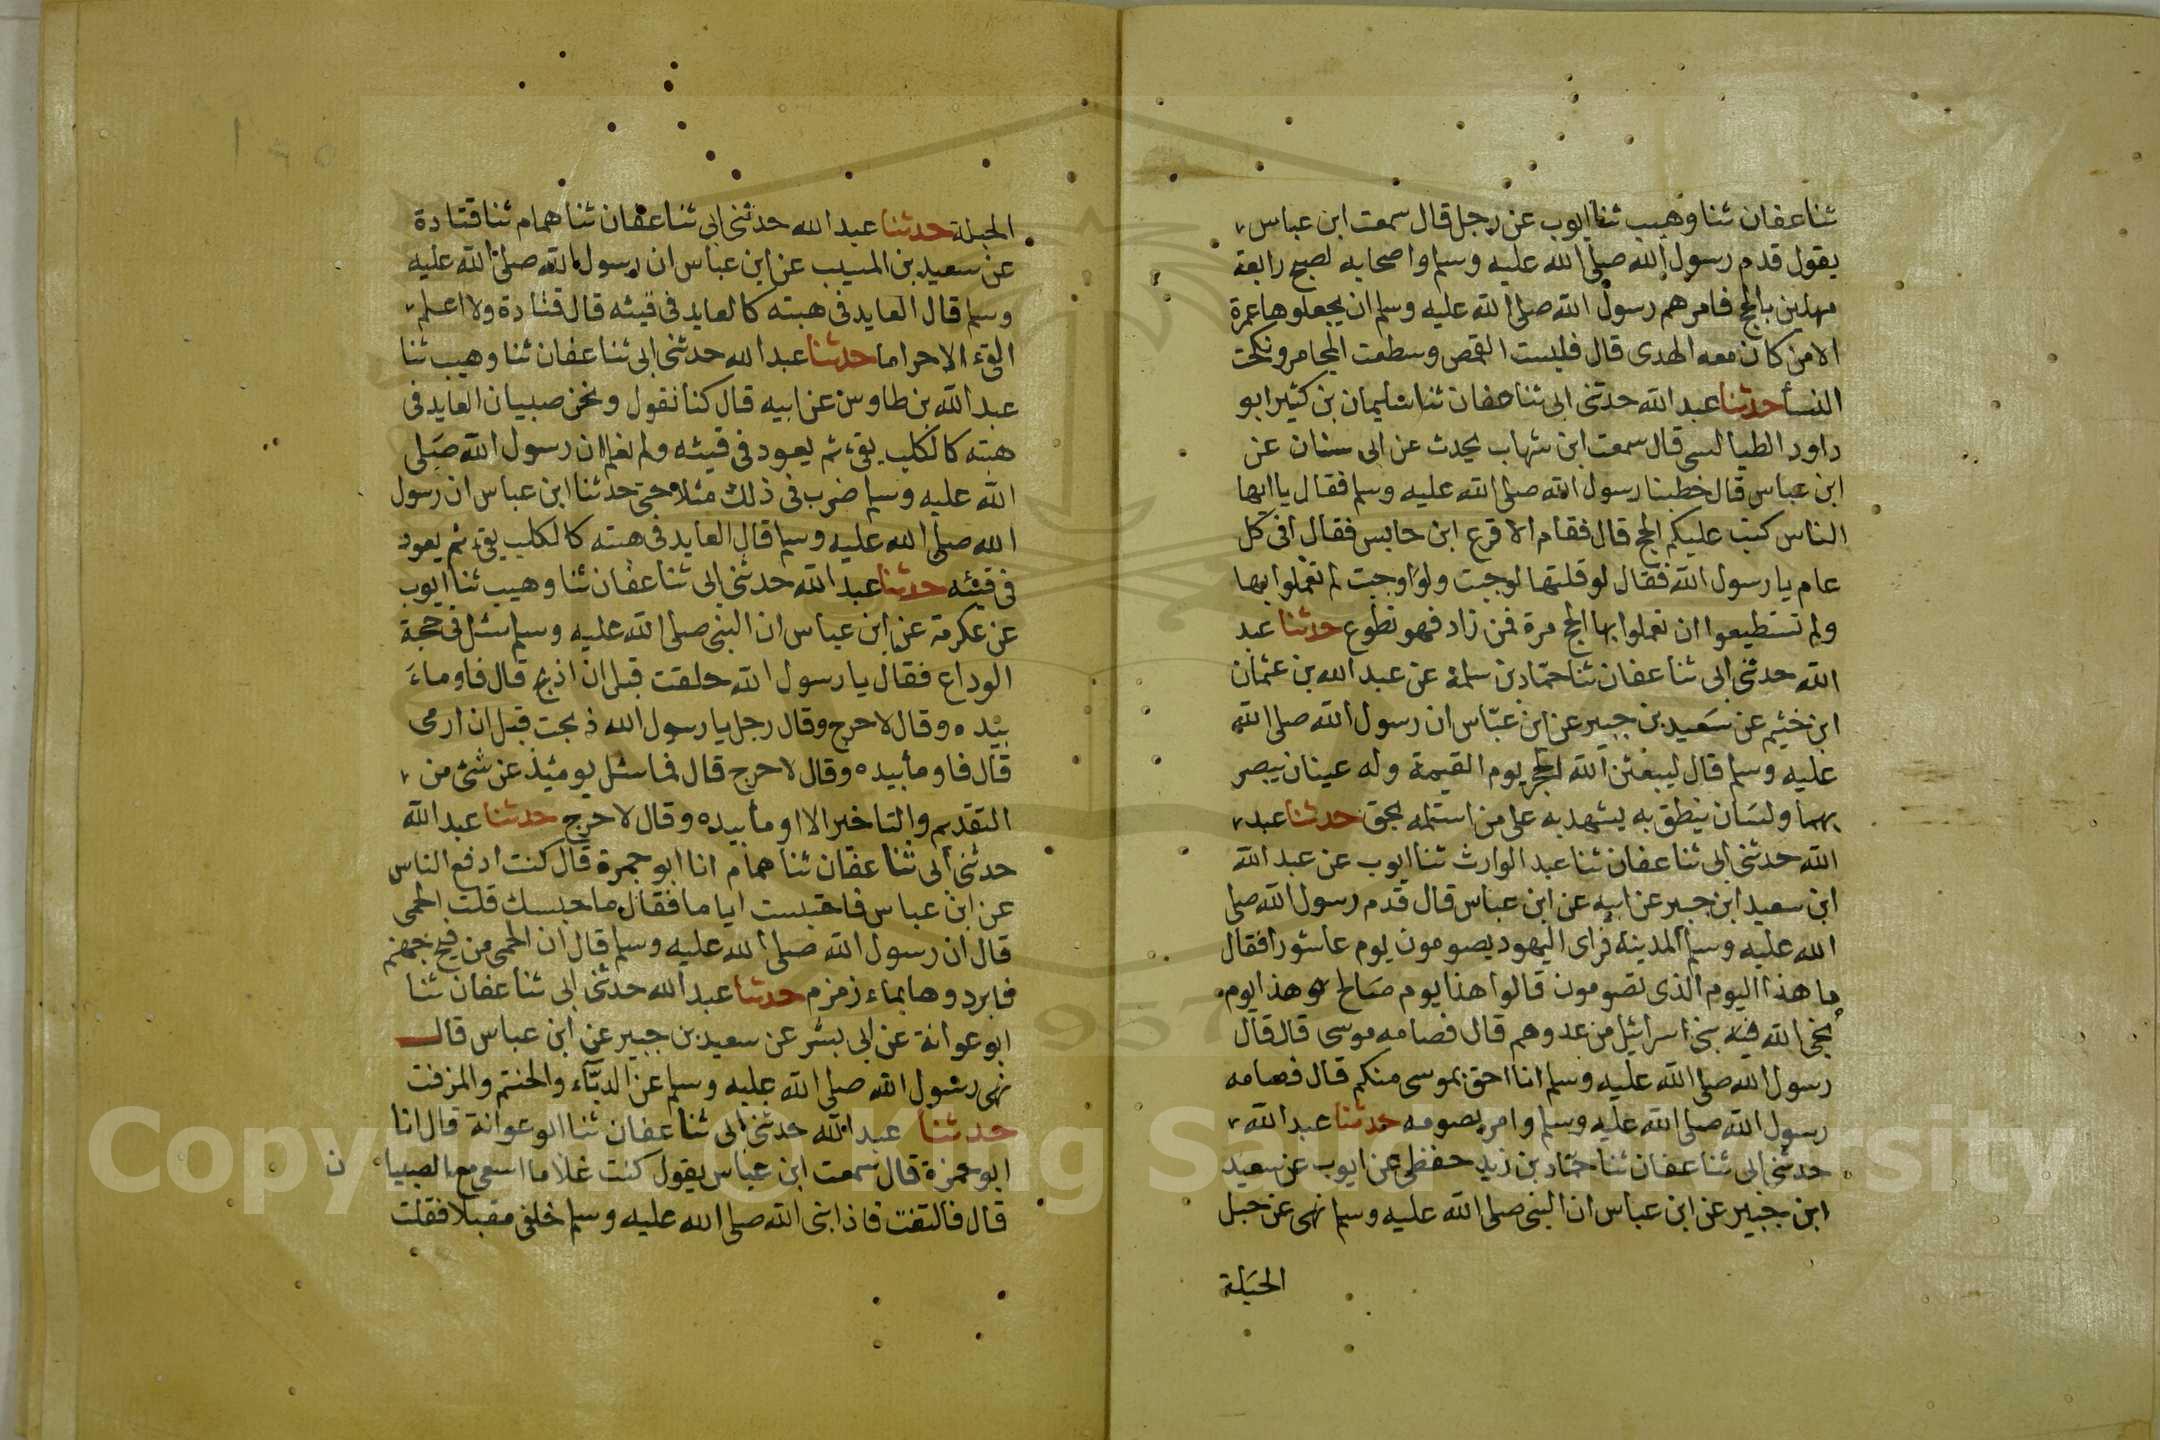 ثنا عفان ثنا وهيب ثنا ايوب عن رجل قال سمعت ابن عباس
يقول قدم رسول الله صلى الله عليه وسلم واصحابه لصبح رابعة
مهلين بالحج فامرهم رسول الله صلى الله عليه وسلم ان يجعلوها عمرة
الا من كان معه الهدى قال فلبست القمص وسطعت المجامر ونكحت
النسأ حدثنا عبد الله حدثنى ابى ثنا عفان ثنا سليمان بن كثير ابو
داود الطيالسى قال سمعت ابن شهاب يحدث عن ابى سنان عن
ابن عباس قال خطبنا رسول الله صلى الله عليه وسلم فقال يا ايها
الناس كتب عليكم الحج قال فقام الاقرع ابن حابس فقال افى كل
عام يا رسول الله فقال لو قلتها لوجبت ولو وجبت لم تعملوا بها
ولم تستطيعوا ان تعملوا بها الحج مرة فمن زاد فهو تطوع حدثنا عبد
الله حدثنى ابى ثنا عفان ثنا حمّاد بن سلمة عن عبد الله بن عثمان
ابن خثيم عن سَعيد بن جبير عن ابن عبّاس ان رسول الله صلى الله
عليه وسلم قال ليبعثن الله الحجر يوم القيمة وله عينان يبصر
بهما ولسَان ينطق به يشهد به على من استلمه بحق حدثنا عبد
الله حدثنى ابى ثنا عفان ثنا عبد الوارث ثنا ايوب عن عبد الله
ابن سعيد ابن جبير عن ابيه عن ابن عباس قال قدم رسول الله صلى
الله عليه وسلم المدينة فراى اليهود يصومون يوم عاشورا فقال
ما هذا اليوم الذى تصومون قالوا هذا يوم صَالح هذا يوم
نجى الله فيه بنى اسرائيل من عدوهم قال فصامه موسى قال قال
رسول الله صلى الله عليه وسلم انا احق بموسى منكم قال فصامه
رسول الله صلى الله عليه وسلم وامر بصومه حدثنا عبد الله
حدثنى ابى ثنا عفان ثنا حمّاد بن زيد حفظى عن ايوب عن سعيد
ابن جبير عن ابن عباس ان النبى صلى الله عليه وسلم نهى عن حبل
الحبَلة
الحبلة حدثنا عبد الله حدثنى ابى ثنا عفان ثنا همام ثنا قتادة
عن سعيد بن المسيب عن ابن عباس ان رسول الله صلى الله عليه
وسلم قال العايد فى هبته كالعايد فى قيئه قال قتادة ولا اعلم
القئ الا حراما حدثنا عبد الله حدثنى ابى ثنا عفان ثنا وهيب ثنا
عبد الله بن طاوس عن ابيه قال كنا نقول ونحن صبيان العايد فى
هبته كالكلب يقئ ثم يعود فى قيئه ولم نعلم ان رسول الله صَلى
الله عليه وسلم ضرب فى ذلك مثلا حتى حدثنا ابن عباس ان رسول
الله صلى الله عليه وسلم قال العايد فى هبته كالكلب يقئ ثم يعود
فى قيئه حدثنا عبد الله حدثنى ابى ثنا عفان ثنا وهيب ثنا ايوب
عن عكرمة عن ابن عباس ان النبى صلى الله عليه وسلم سئل فى حجة
الوداع فقال يا رسول الله حلقت قبل ان اذبح قال فاومَاءَ
بيْده وقال لا حرج وقال رجل يا رسول الله ذبحت قبل ان ارمى
قال فاومأ بيده وقال لا حرج قال فما سئل يومئذ عن شئ من
التقديم والتاخير الا اومأ بيده وقال لا حرج حدثنا عبد الله
حدثنى ابى ثنا عفان ثنا همام انا ابو جمرة قال كنت ادفع الناس
عن ابن عباس فاحتبست اياما فقال ما حبسك قلت الحمى
قال ان رسول الله صلى الله عليه وسلم قال ان الحمى من فيح جهنم
فابردوها بماء زمزم حدثنا عبد الله حدثنى ابى ثنا عفان ثنا
ابو عوانة عن ابى بشر عن سعيد بن جبير عن ابن عباس قال
نهى رسول الله صلى الله عليه وسلم عن الدبّاء والحنتم والمزفت
حدثنا عبد الله حدثنى ابى ثنا عفان ثنا ابو عوانة قال انا
ابو حمزة قال سمعت ابن عباس يقول كنت غلاما اسعى مع الصبيان
قال فالتفت فاذا بنى الله صلى الله عليه وسلم خلفى مقبلا فقلت